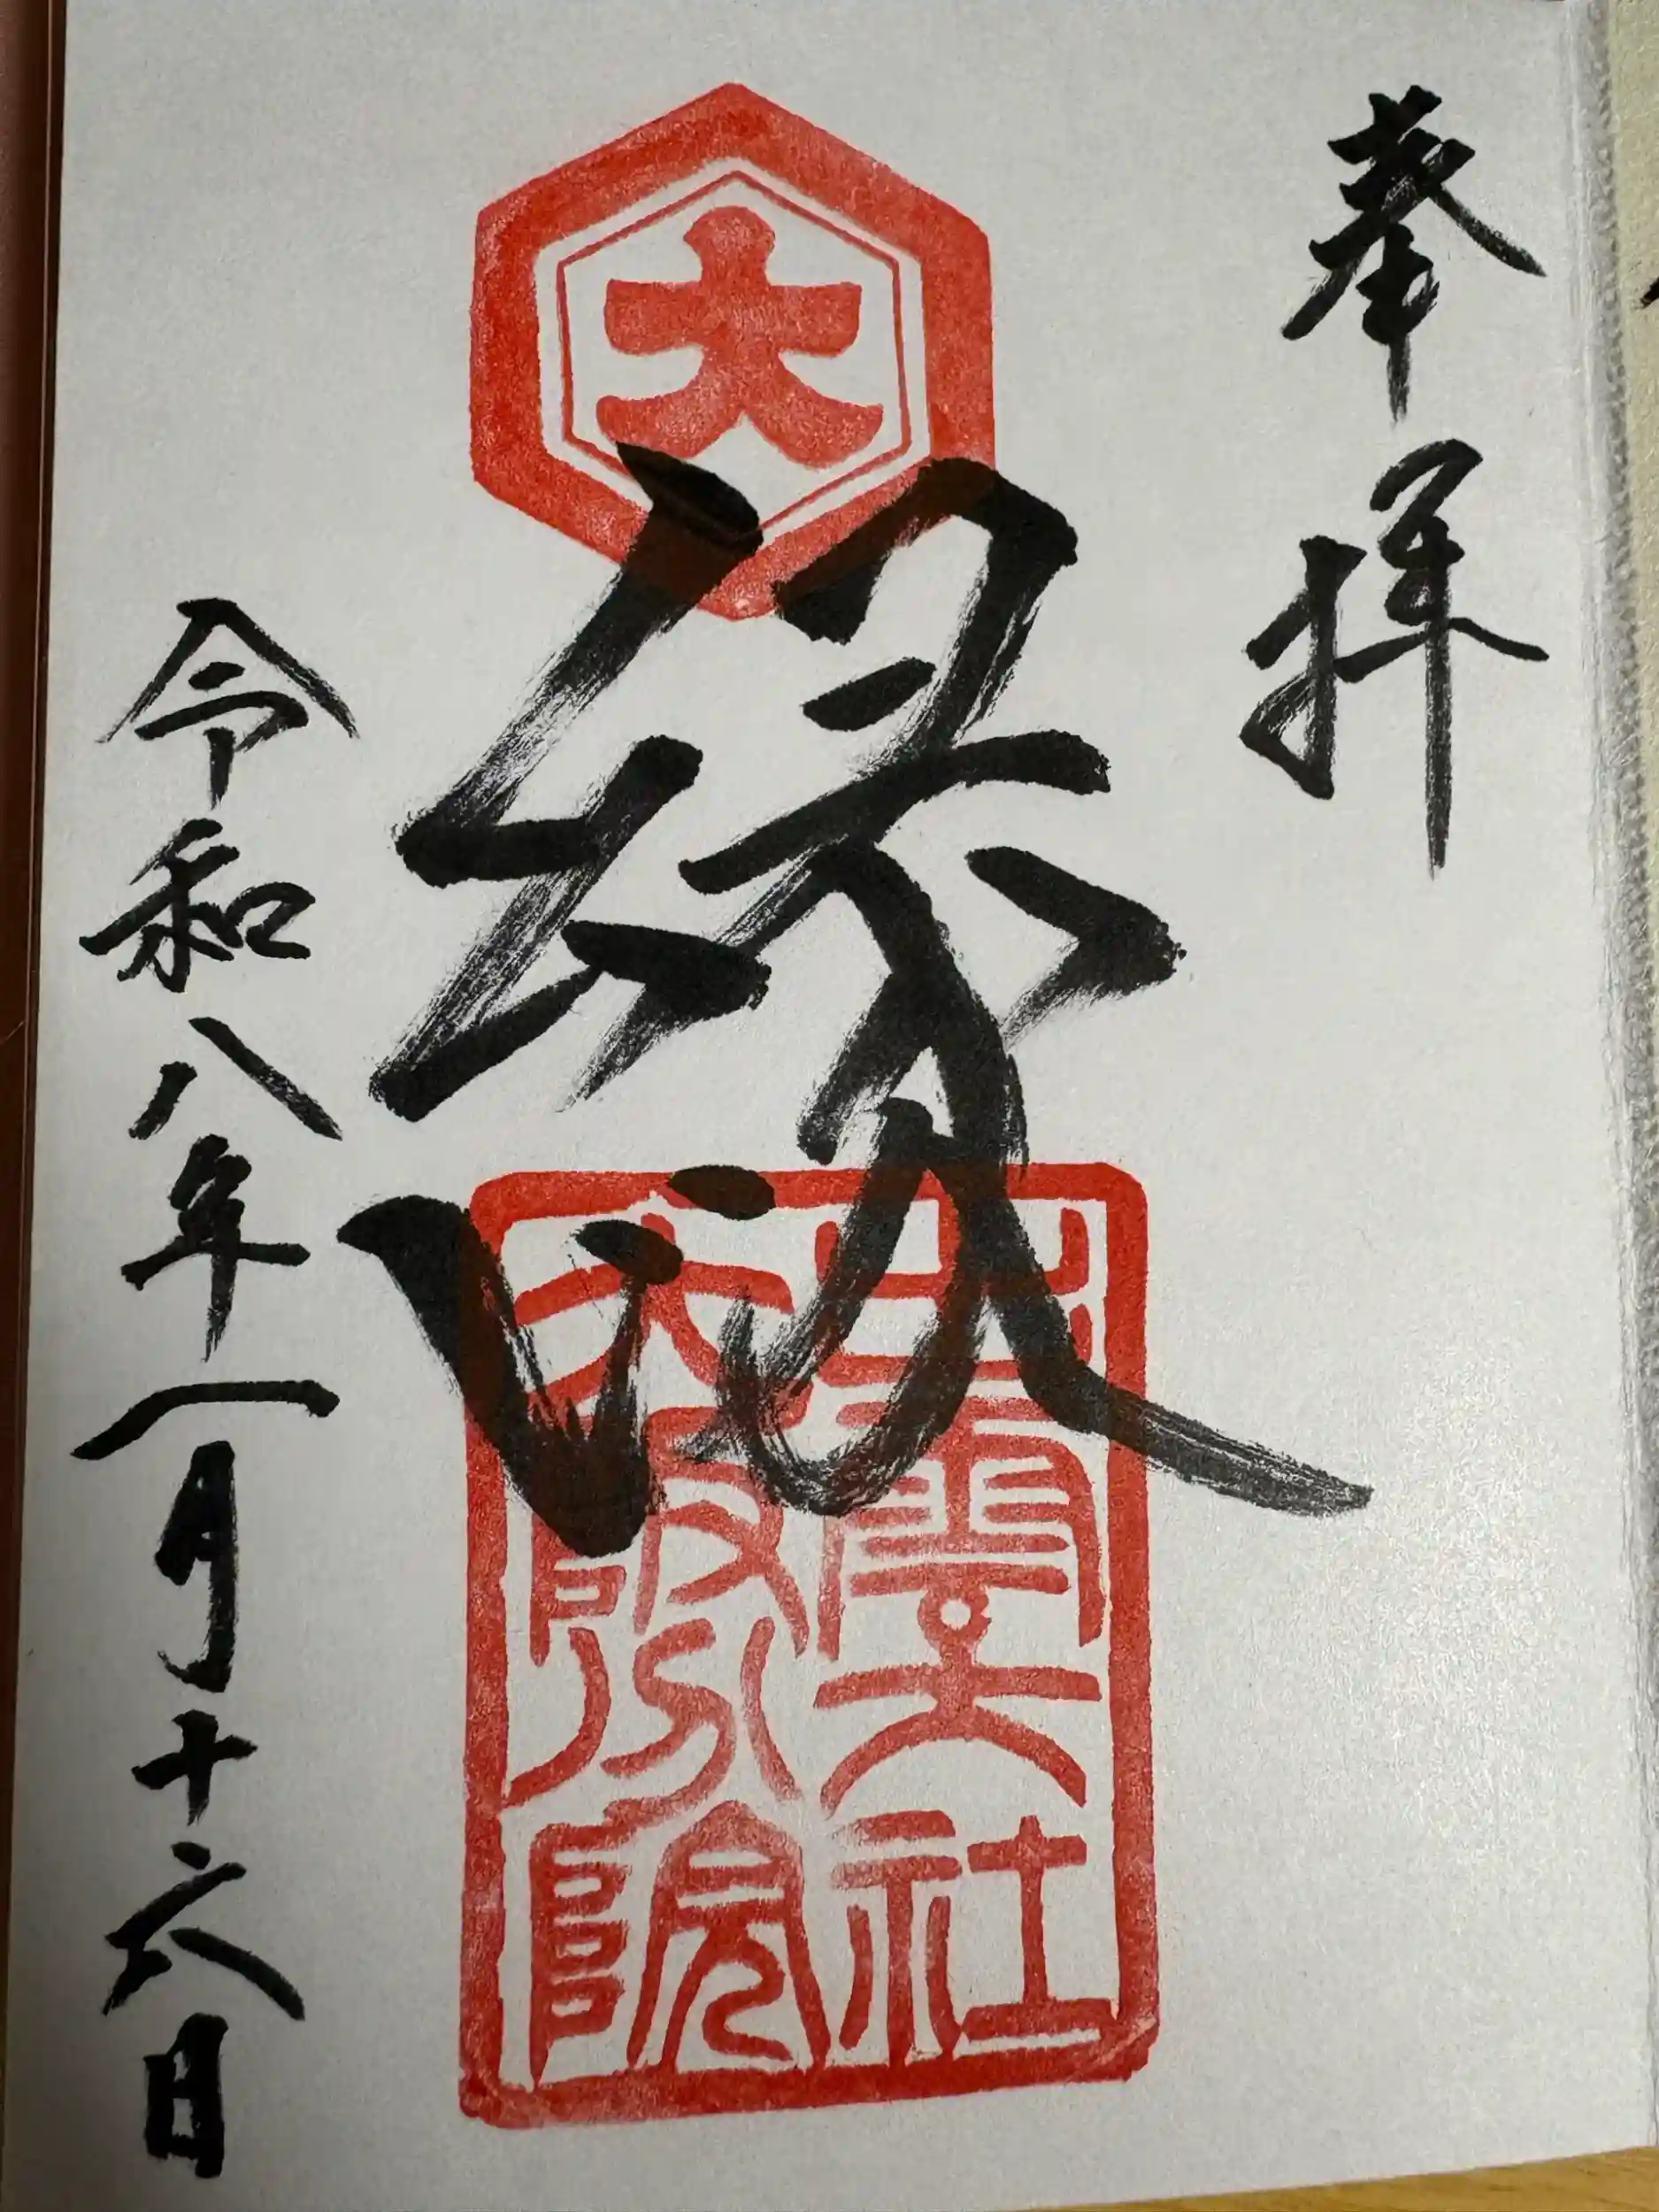 奉拝
大
縁
出雲大社
大阪分院
令和八年一月十六日